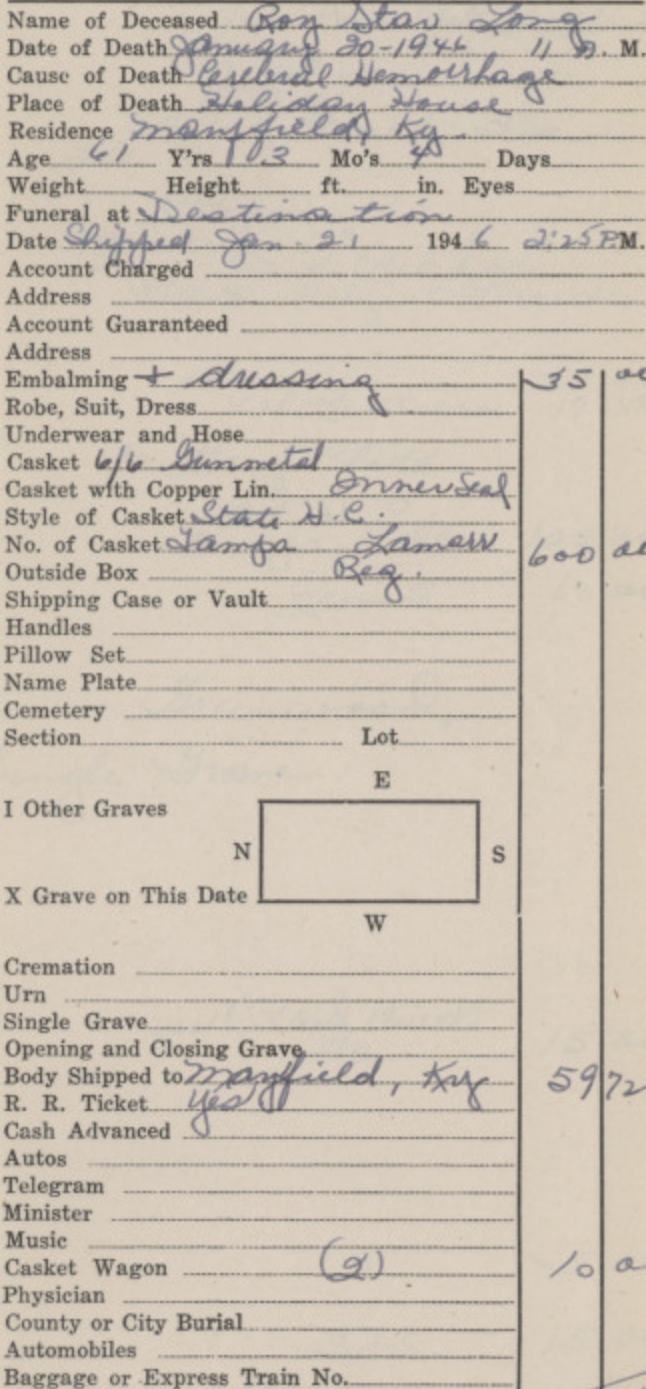 Name of Deceased Roy Star Long
Date of Death January 20-1946 11 M.
Cause of Death Cerebral Hemorrhage
Place of Death Holiday House
Residence Mayfield, Ky.
Age 61 Y'rs 3 Mo's 4 Days
Weight Height ft. in. Eyes
Funeral at Destination
Date Shipped Jan. 21 1946 2:25 P.M.
Account Charged
Address
Account Guaranteed
Address
Embalming + dressing 35 00
Robe, Suit, Dress
Underwear and Hose
Casket 6/6 Gunmetal
Casket with Copper Lin. Inner Seal
Style of Casket State H.C.
No. of Casket Tampa 600 00
Outside Box Reg.
Shipping Case or Vault
Handles
Pillow Set
Name Plate
Cemetery
Section Lot
E
I Other Graves
N S
X Grave on This Date
W
Cremation
Urn
Single Grave
Opening and Closing Grave
Body Shipped to Mayfield, Ky 59 72
R. R. Ticket yes
Cash Advanced
Autos
Telegram
Minister
Music
Casket Wagon (2) 10 0
Physician
County or City Burial
Automobiles
Baggage or Express Train No.